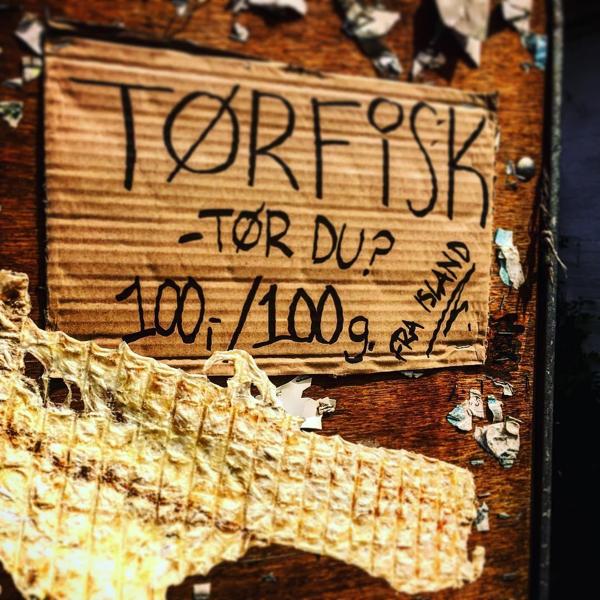 TØRFISK
-TØR DU?
100,-/100g.
FRA ISLAND